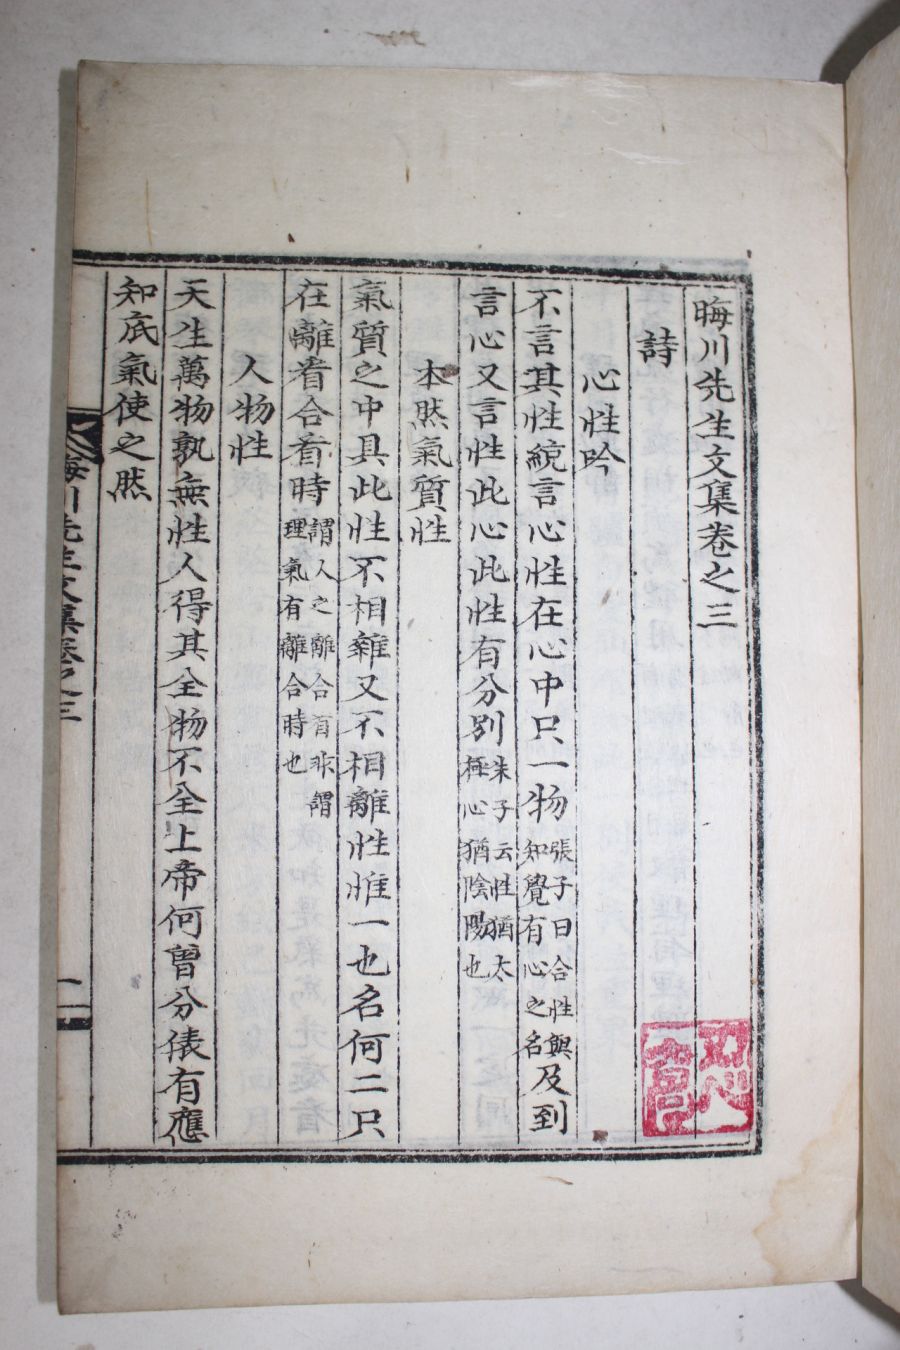 晦川先生文集卷之三
詩
心性吟
不言其性統言心性在心中只一物張子曰合性與知覺有心之名及到
言心又言性此心此性有分別朱子云性猶太極心猶陰陽也
本然氣質性
氣質之中具此性不相雜又不相離性惟一也名何二只
在離看合看時謂人之離合看非謂理氣有離合時也
人物性
天生萬物孰無性人得其全物不全上帝何曾分俵有應
知底氣使之然
晦川先生文集卷之三
一